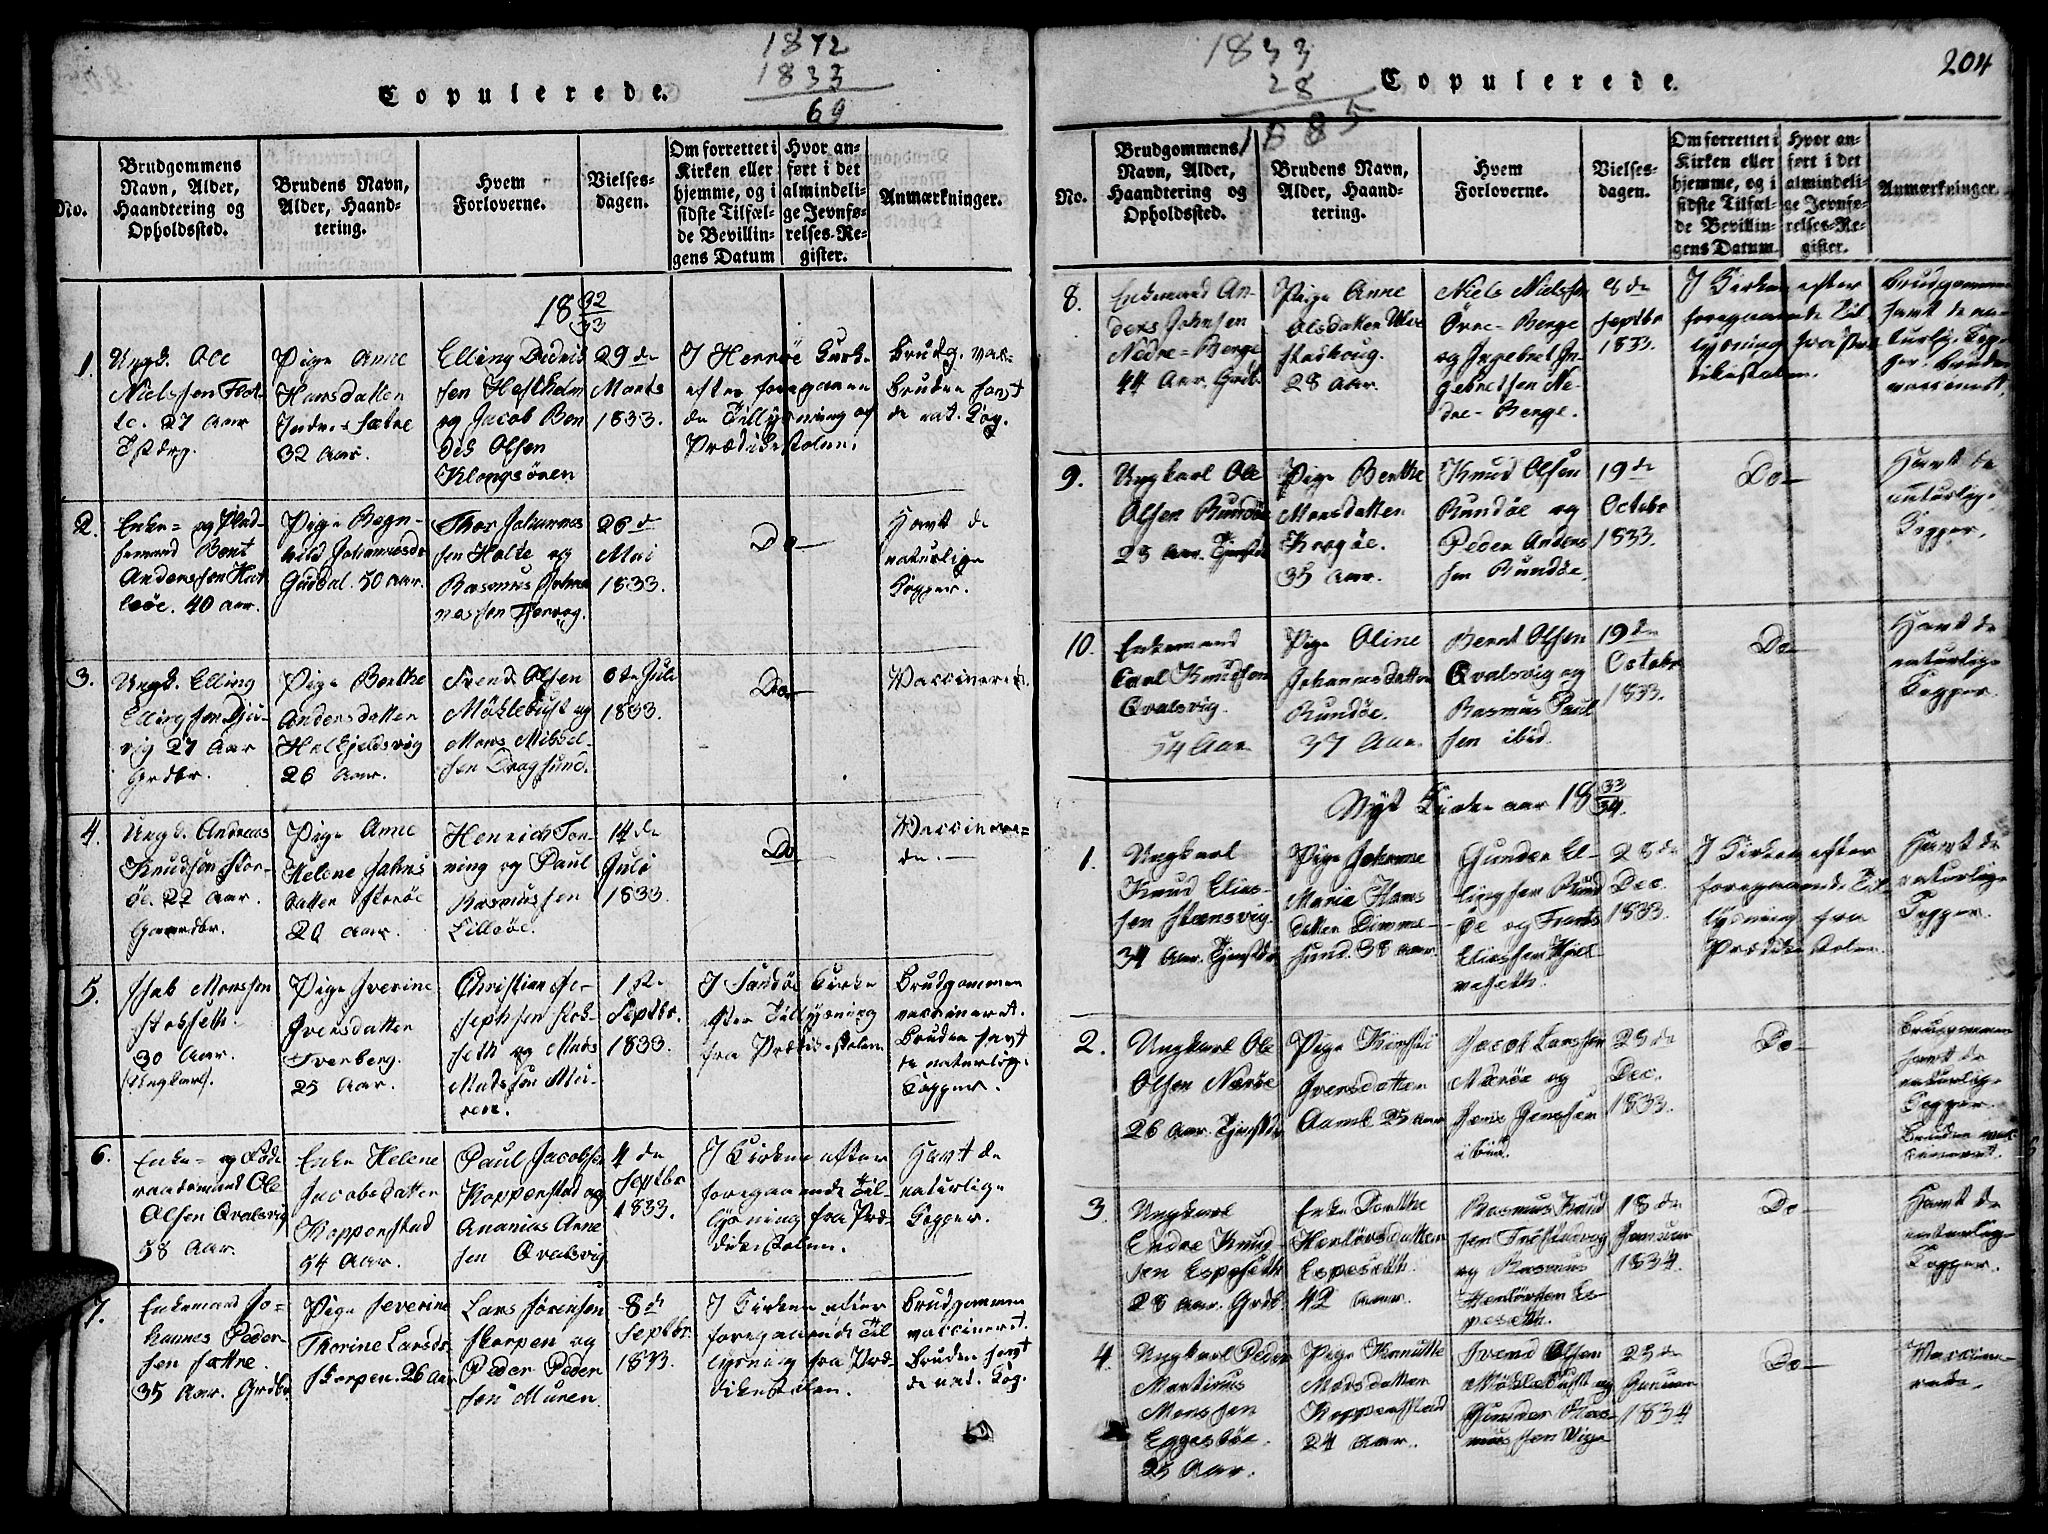 1872
1833
69
Copulerede.
No.
Brudgommens
Navn, Alder,
Haandtering og
Opholdssted.
Brudens Navn,
Alder, Haand-
tering.
Hvem
Forloverne.
Vielses-
dagen.
Om forrettet i
Kirken eller
hjemme, og i
sidste Tilfæl-
de Bevillin-
gens Datum
Hvor an-
ført i det
almindeli-
ge Jevnfø-
relses-Re-
gister.
Anmærkninger.
18 32/33
1.
Ungk. Ole
Nielssen
27 Aar
Pige Anne
Hansdatter
Indre-Sætre
32 Aar.
Elling Didrik
sen Hestholm
og Jacob Ben
dik Olsen
29 de
Marts
1833.
I Herröe Kirk.
efter foregaaen
de Tillysning af
Prædikestolen.
Brudg. vac.
Bruden havt
de nat. Kop.
2.
Enke- og
Bent
Anderssen Hat
leöe. 40 Aar.
Pige Ragn-
hild Johannesdr
Gurdal. 50 Aar.
Thor Johannes
sen Holte og
Rasmus Johan
nessen
26 de
Mai
1833.
Do
Havt de
naturlige
Kopper.
3.
Ungk. Elling
Ellingsen
vig 27 Aar
Grdbr.
Pige Berthe
Andersdatter
Halkjeldsvig
26 Aar.
Svend Olsen
Möklebust og
Mons Mikkel-
sen Dragsund.
6 de Juli
1833.
Do
Vaccinerede.
4.
Ungk. Andreas
Knudsen Stor-
öe. 22 Aar.
Gaardbr.
Pige Anne
Helene Johns
datter Storöe
20 Aar.
Henrich Ton-
ning og Paul
Rasmussen
Lillöe.
14 de
Juli
1833.
Do
Vaccinere-
de.
5.
Monssen
Stokseth.
30 Aar.
Ungkarl.
Pige Iverine
Iversdatter
Tverberg.
25 Aar.
Christian Jo-
sephsen Stok-
seth og Mads
Madssen Mu-
ren.
1 ste
Septbr.
1833.
I Sandöe Kirke
efter Tillysning
fra Prædikestolen.
Brudgommen
vaccineret.
Bruden havt
de naturlige
Kopper.
6.
Enke- og Föde
raadsmand Ole
Olsen Qvalsvig
58 Aar.
Enke Helene
Jacobsdatter
Koppenstad
54 Aar.
Paul Jacobsen
Koppenstad og
Ananias Arne
sen Qvalsvig
4 de
Septbr
1833.
I Kirken efter
foregaaende Til-
lysning fra Præ-
dikestolen.
Havt de
naturlige
Kopper.
7.
Enkemand Jo-
hannes Peder-
sen Sætre.
35 Aar. Grdbr
Pige Severine
Thorine Larsdr
Skorpen. 26 Aar
Lars Sörensen
Skorpen og
Peder Peder
sen Muren.
8 de
Septbr.
1833.
I Kirken efter
foregaaende Til
lysning fra Præ-
dikestolen.
Brudgommen
vaccineret.
Bruden havt
de nat. Kop.
1833
28
1885
Copulerede.
204
No.
Brudgommens
Navn, Alder,
Haandtering og
Opholdssted.
Brudens Navn,
Alder, Haand-
tering.
Hvem
Forloverne.
Vielses-
dagen.
Om forrettet i
Kirken eller
hjemme, og i
sidste Tilfæl-
de Bevillin-
gens Datum.
Hvor an-
ført i det
almindeli-
ge Jevnfø-
relses-Re-
gister.
Anmærkninger.
8.
Enkemand An-
ders Johnsen
Nedre-Berge
44 Aar. Grdb.
Pige Anne
Olsdatter
28 Aar.
Niels Nielssen
Övre-Berge
og Ingebret In-
gebretsen Ne-
dre-Berge.
8 de
Septbr
1833.
I Kirken efter
foregaaende Til
lysning fra Præ
dikestolen.
Brudgommen
havt de na-
turlig. Kop-
per. Bruden
vaccineret.
9.
Ungkarl Ole
Olsen Rundöe
Pige Berthe
Monsdatter
35 Aar.
Knud Olsen
Rundöe og
Peder Anders
sen Rundöe.
19 de
Octobr
1833.
Do
Havt de
naturlige
Kopper.
10.
Enkemand
Carl Knudsen
Qvalsvig.
54 Aar
Pige Oline
Johannesdatter
Rundöe.
37 Aar.
Bernt Olsen
Qvalsvig og
Rasmus Paul
sen ibid.
19 de
Octobr
1833.
Do
Havt de
naturlige
Kopper.
Nyt Kirke-aar 18 33/34.
1.
Ungkarl
Knud Elias-
sen
34 Aar. Tjenstdr
Pige Johanne
Marie Hans
datter Dimme-
sund. 38 Aar.
Gunder El-
lingsen Rund
öe og Frants
Eliassen
28 de
Dec.
1833.
I Kirken efter
foregaaende Til
lysning fra
Prædikestolen.
Havt de
naturlige
Kopper.
2.
Ungkarl Ole
Olsen Næröe
26 Aar. Tjenstdr
Pige
Iversdatter
25 Aar
Jacob Larssen
Næröe og
Jens Jenssen
ibid.
28 de
Dec.
1833.
Do
Brudgommen
havt de
naturlige
Kopper.
Bruden vac
cineret.
3.
Ungkarl
Endre Knud-
sen Espeseth
28 Aar. Grdb.
Enke Dorthe
Herlövsdatter
Espeseth.
42 Aar.
Rasmus Knud
sen
og Rasmus
Herlövsen Es-
peseth.
18 de
Januar
1834.
Do
Havt de
naturlige
Kopper.
4.
Ungkarl Peder
Martinus
Monssen
Eggesböe.
25 Aar.
Pige
Madsdatter
Koppenstad
24 Aar.
Svend Olsen
Möklebust og
Gunder Ras-
mussen Vige
23 de
Januar
1834
Do
Vaccine-
rede.